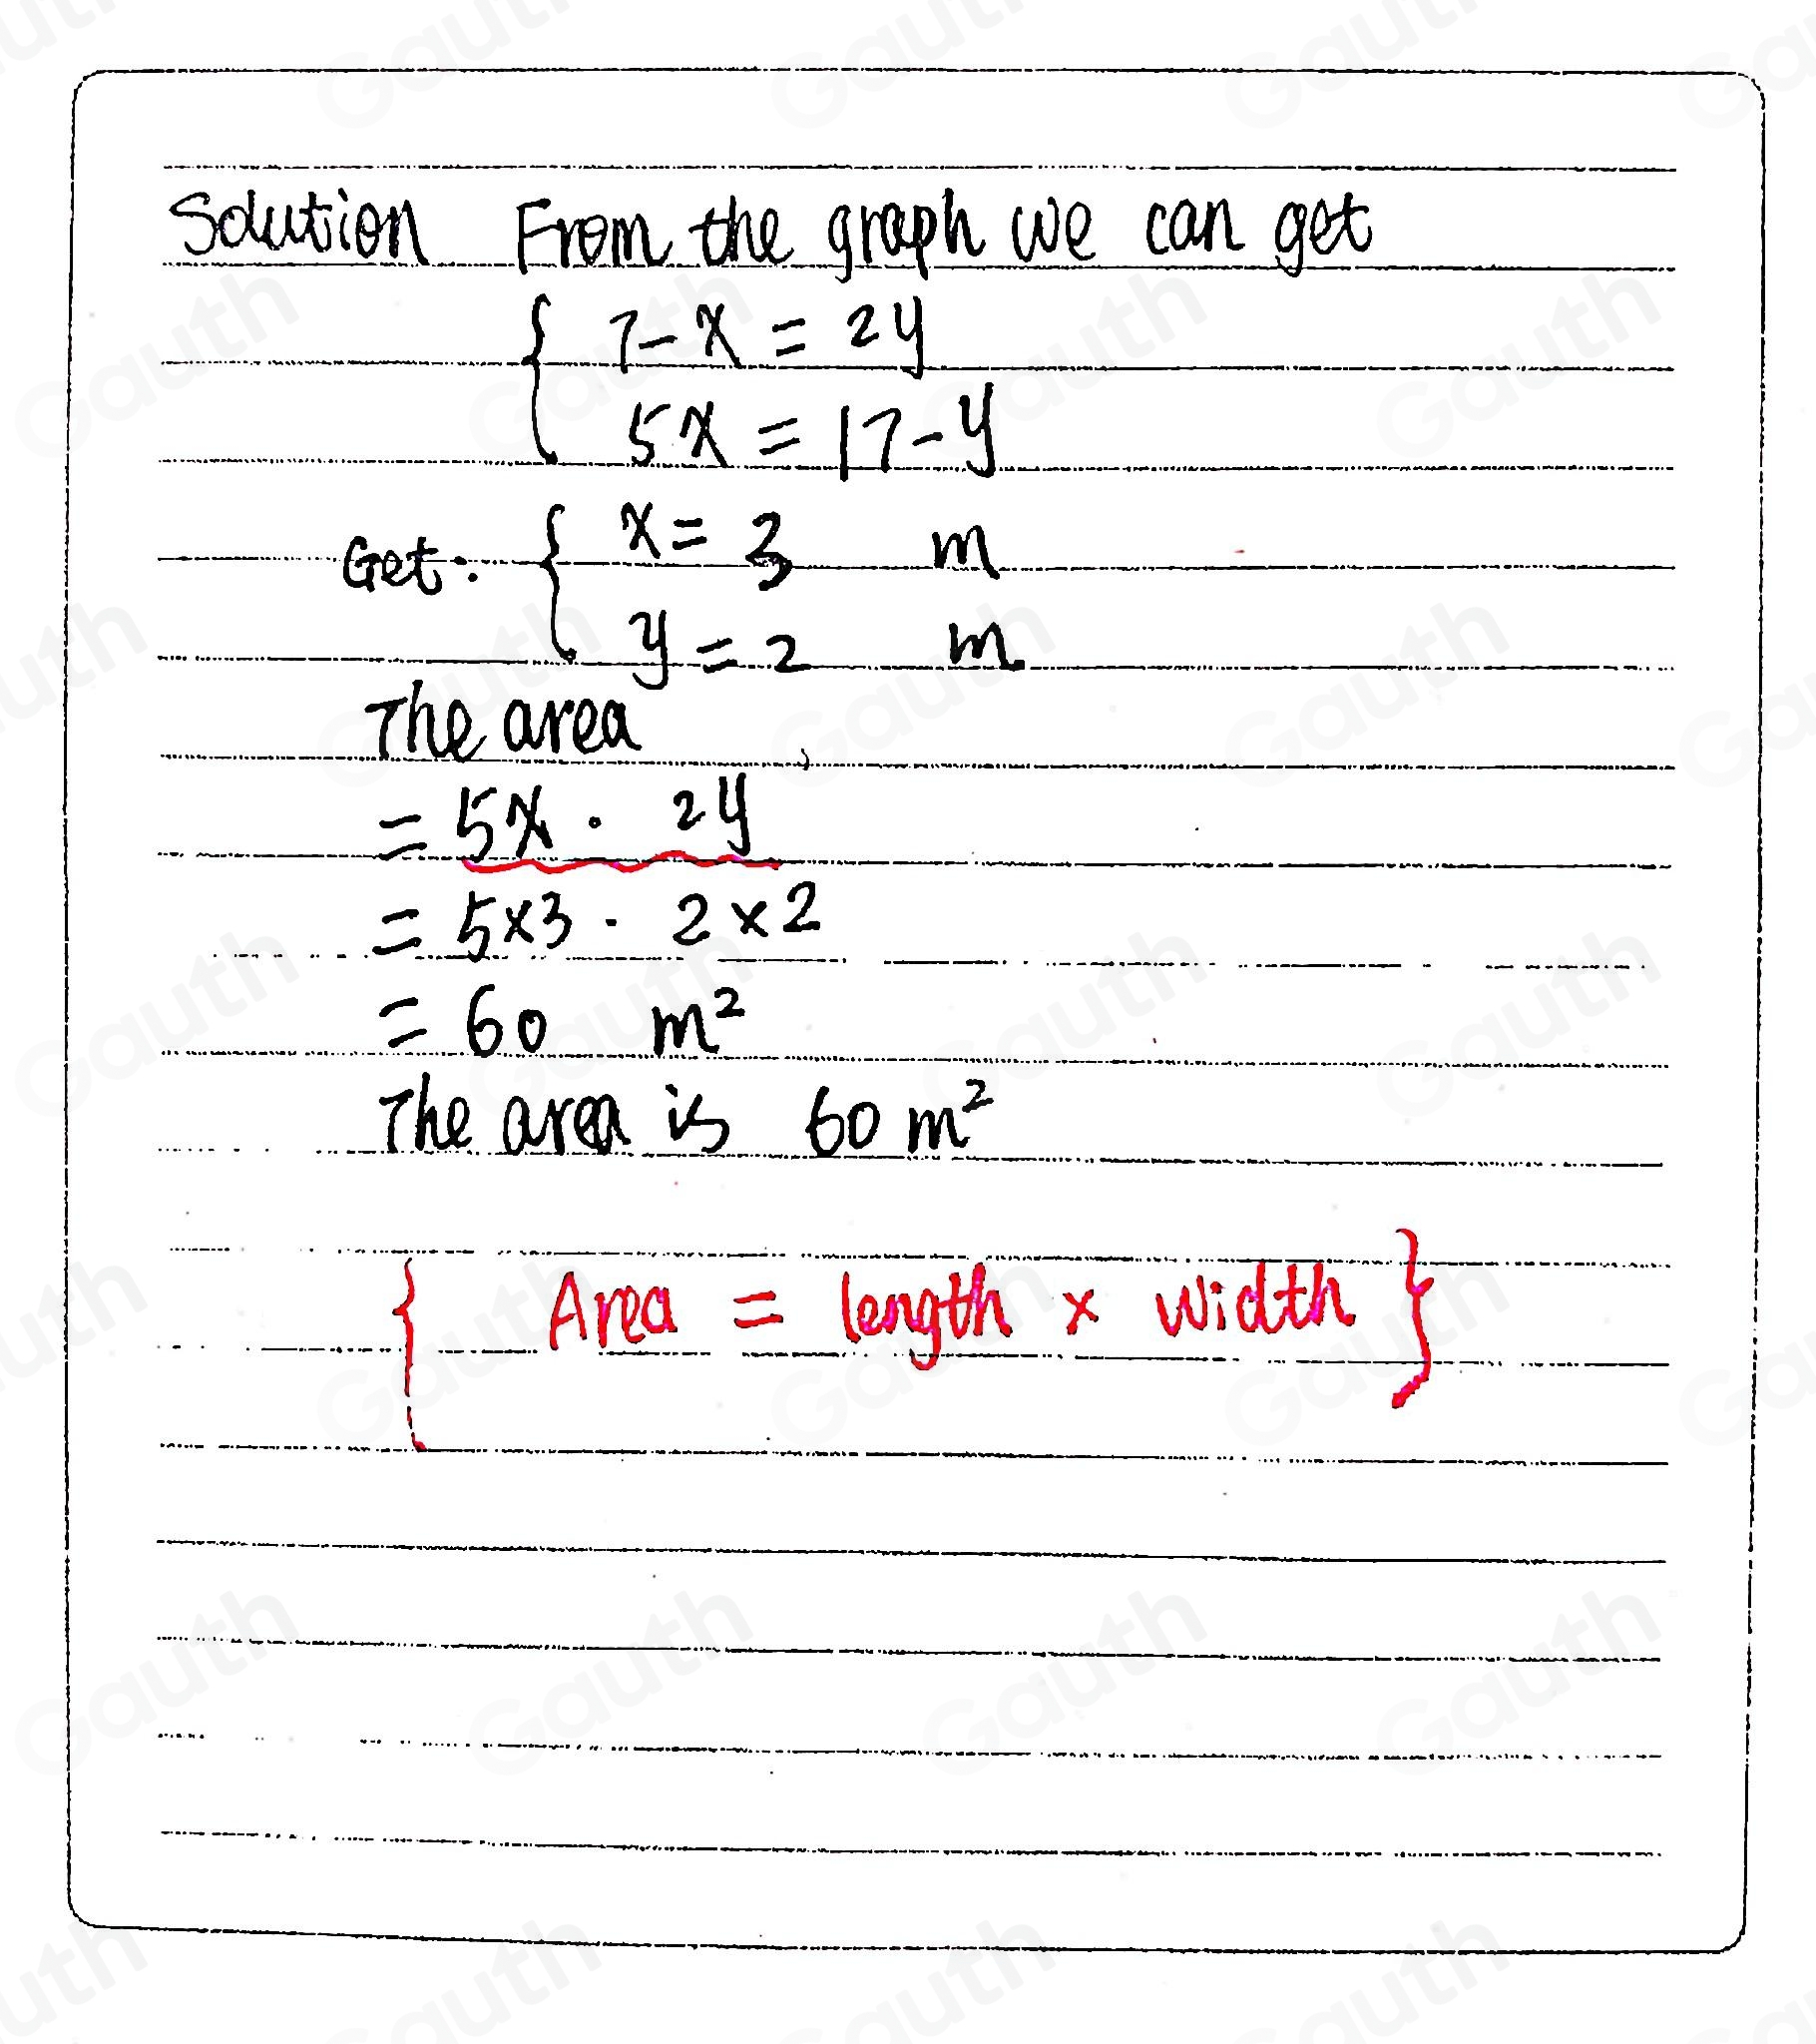 Solution From the graph we can get
{ 7-x = 2y
5x = 17-y
Get: { x = 3 m
y = 2 m
The area
= 5x · 2y
= 5×3 · 2×2
= 60 m²
The area is 60 m²
{ Area = length × width }